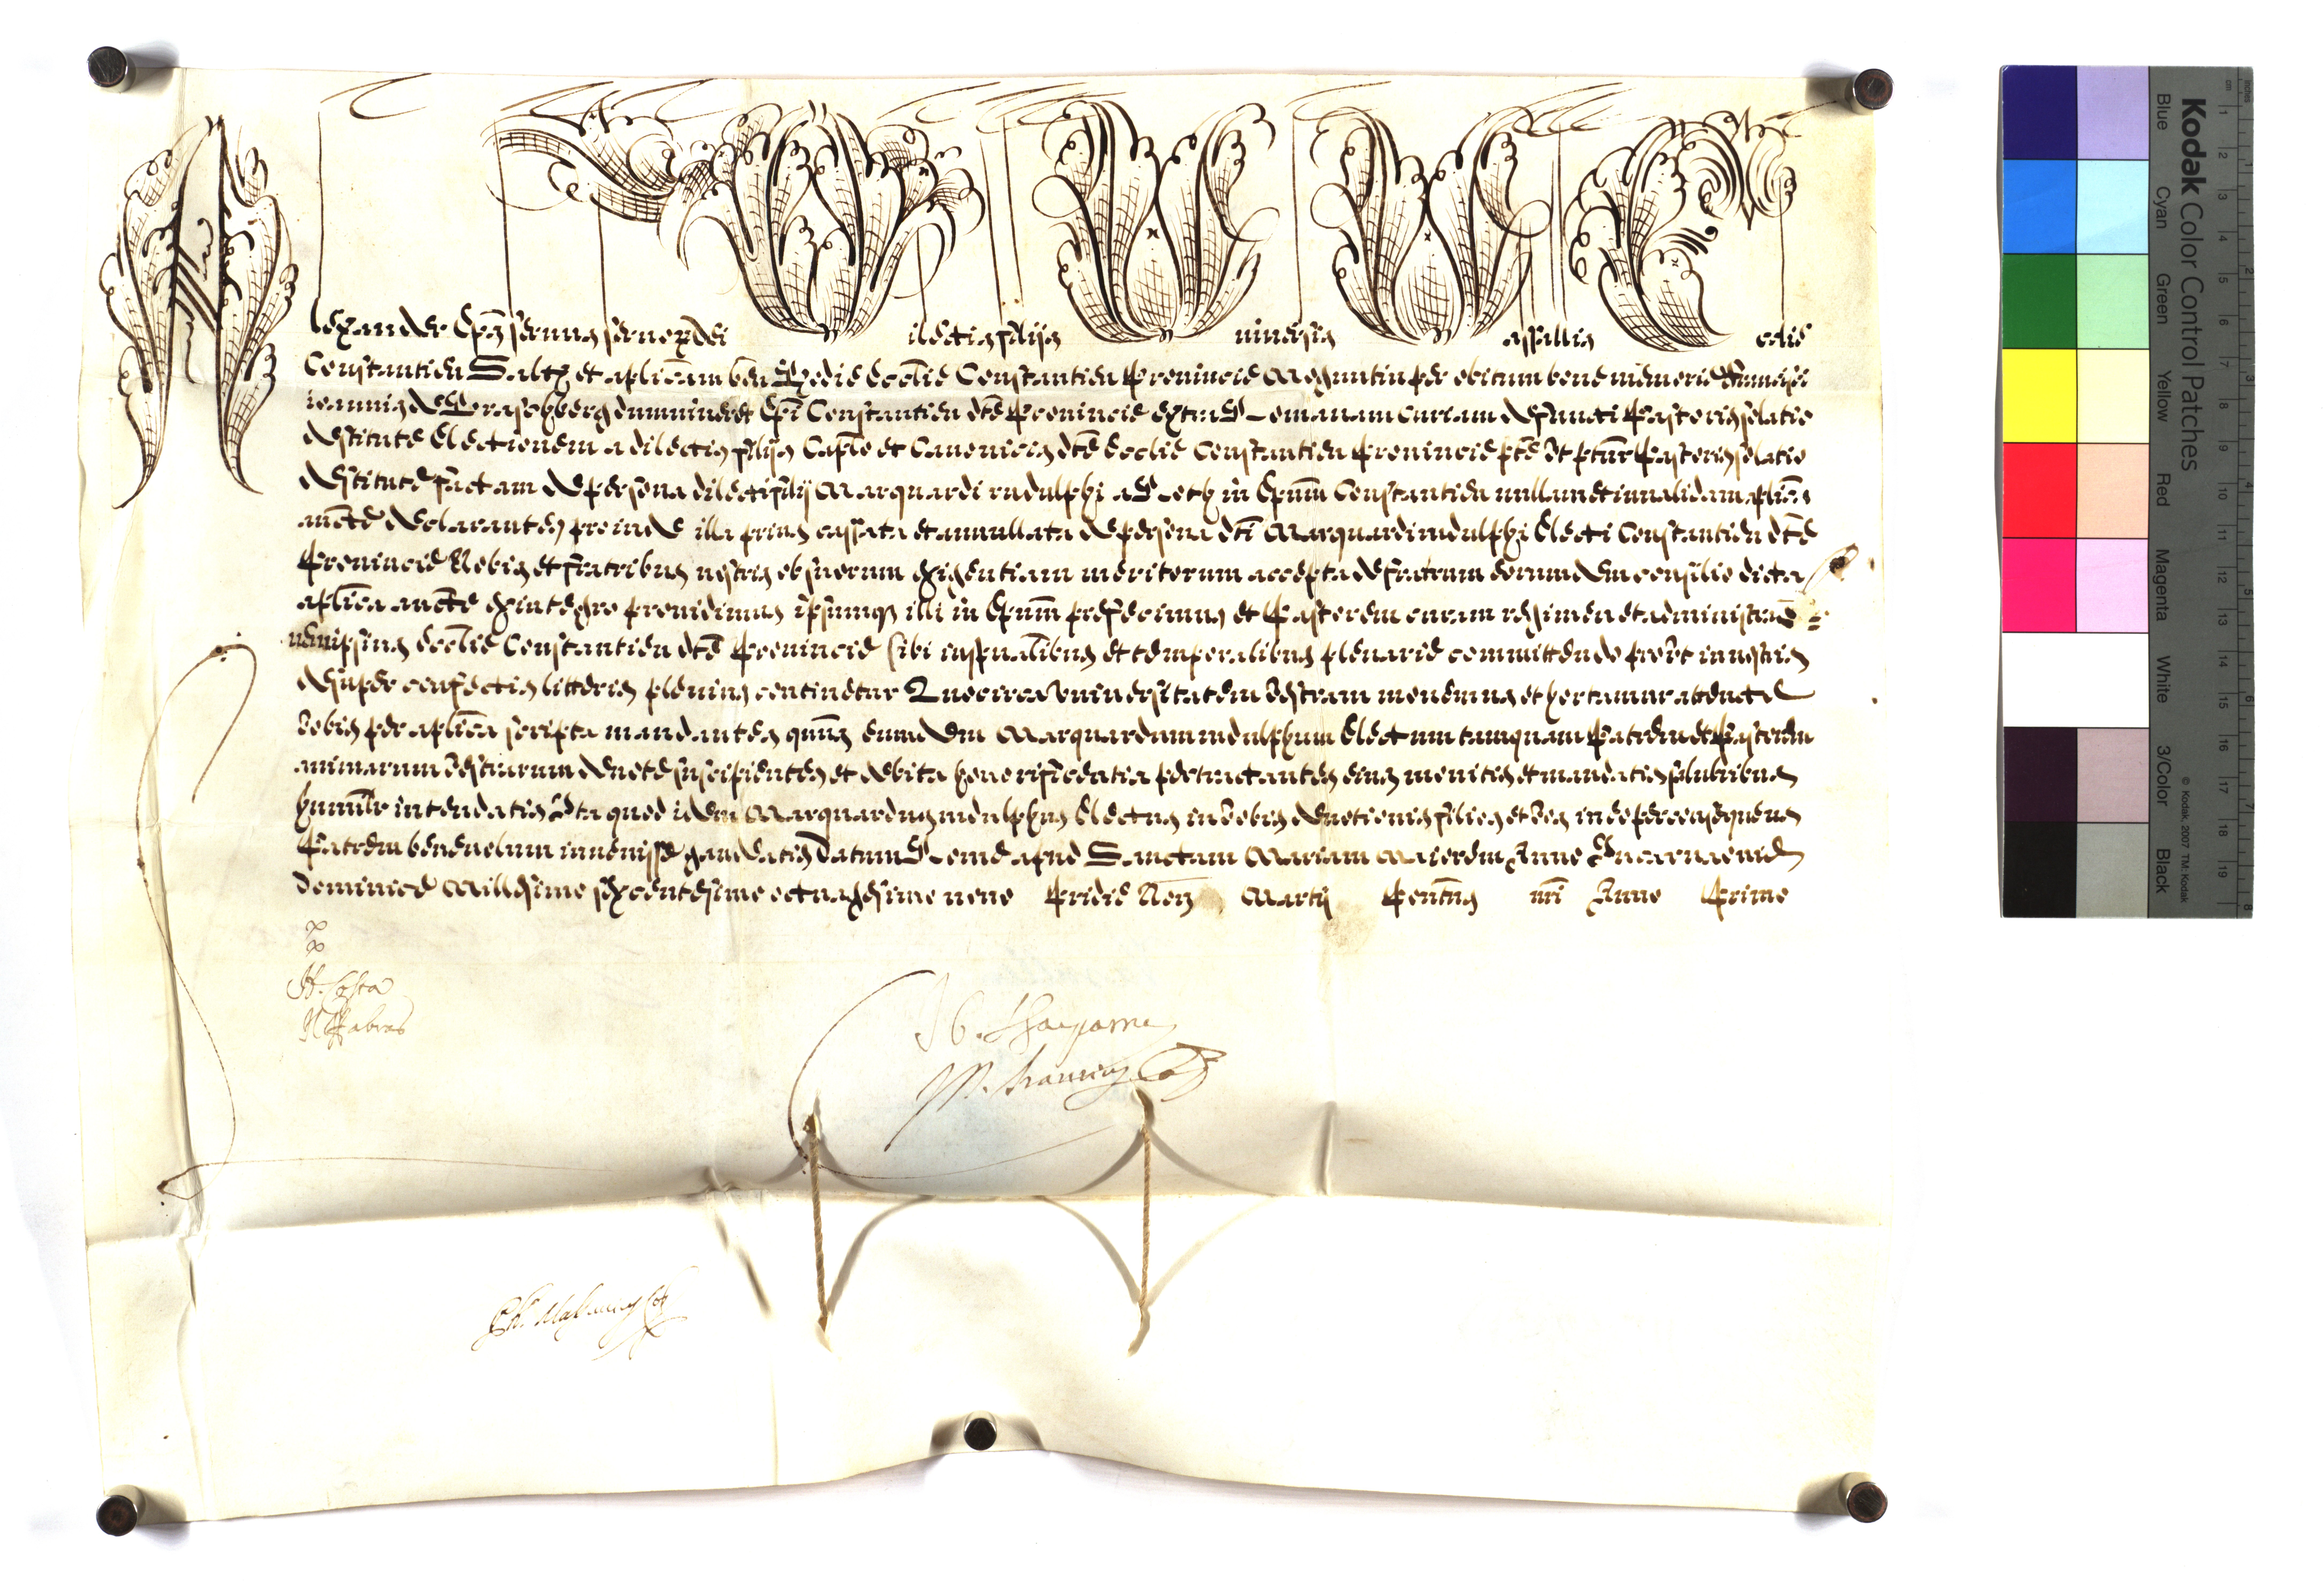 Alexander Ep̄s seruus seruor̄ dei Dilectis filijs Vniuersis Vassallis Ecclie
Constantien Saltm et aplicam ben Hodie Ecclie Constantien Prouincie Moguntin per obitum bone memorie Francisci
ioannis de Praschberg dum uiueret Epi Constantien dte Prouincie extra Romanam curiam defuncti Pastoris solatio
destitute Electionem a dilectis filijs Caplo et Canonicis dte Ecclie Constantien Prouincie pte ut ptur Pastoris solatio
destitute factam de persona dilecti filij Marquardi rudulphi a Roth in Epum Constantien nullam et inualidam aplica
aucte declarantes proinde illa prius cassata et annullata de persona dti Marquardi rudulphi Electi Constantien dte
Prouincie Nobis et fratribus nostris ob suorum exigentiam meritorum accepta de fratrum eorumdem consilio dicta
aplica aucte ex integro prouidimus ipsumq illi in Epum prefecimus et Pastorem curam regimen et administratio
nem ipsius Ecclie Constantien dte Prouincie sibi in spualibus et temporalibus plenarie committendo prout in nostris
desuper confectis litteris plenius continetur Quocirca Vniuersitatem Vestram monemus et hortamur attente
Vobis per aplica scripta mandantes quus eumdem Marquardum rudulphum Electum tamquam Patrem et Pastorem
animarum Vestrarum deuote suscipientes et debita honorificentia pertractantes eius monitis et mandatis salubribus
humilr intendatis Ita quod idem Marquardus rudulphus Electus in Vobis deuotionis filios et Vos in eo per consequens
Patrem beneuolum inuenisse gaudeatis Datum Rome apud Sanctam Mariam Maiorem Anno Incarnaonis
Dominice Millesimo sexcentesimo octuagesimo nono Pridie Non Martij Pontus nri Anno Primo
H. Costa